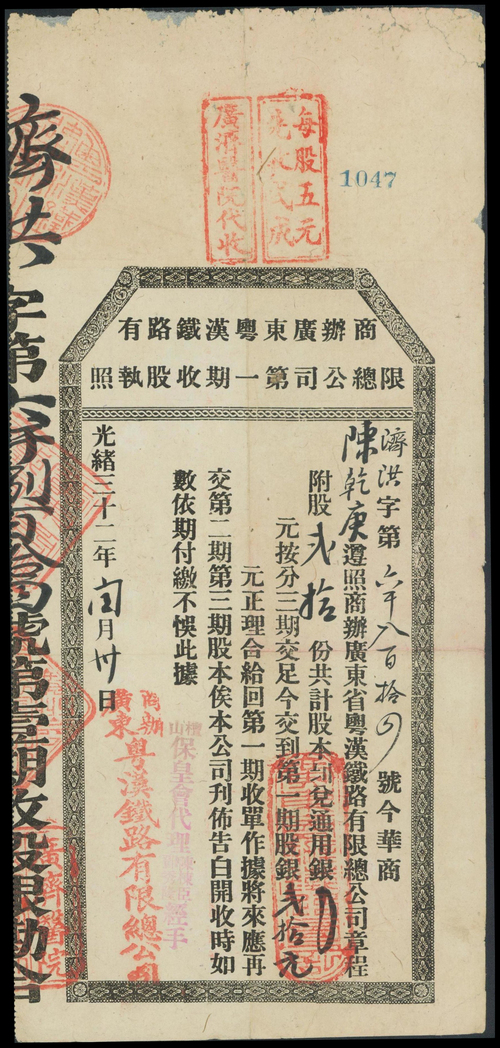 每股五元
先收弍成
廣濟醫院代收
1047
商辦廣東粵漢鐵路有
限總公司第一期收股執照
濟洪字第六千八百拾四號今華商
陳乾庚遵照商辦廣東省粵漢鐵路有限總公司章程
附股弍拾份共計股本即兌通用銀
元按分三期交足今交到第一期股銀弍拾元
元正理合給回第一期收單作據將來應再
交第二期第三期股本俟本公司刊佈告白開收時如
數依期付繳不悞此據
光緒三十二年閏月卅日
保皇會代理
經手
商辦
廣東
粵漢鐵路有限總公司
濟洪字第六千八百拾四號第壹期收股銀勘合
廣濟醫院